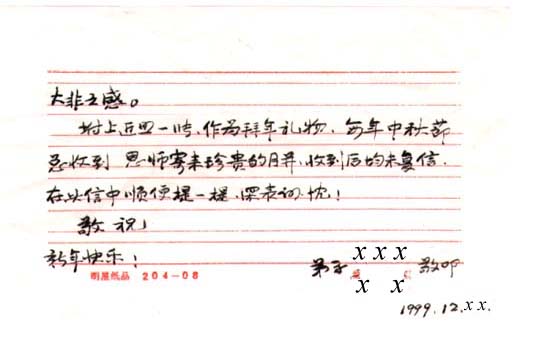 大非之感。
附上近照一帧,作为拜年礼物,每年中秋节
总收到 恩师寄来珍贵的月饼,收到后均未复信,
在此信中顺便提一提,深表内!
敬祝!
新年快乐!
纸品 204-08
弟子 x x x 敬叩
x x
1999.12.x x.